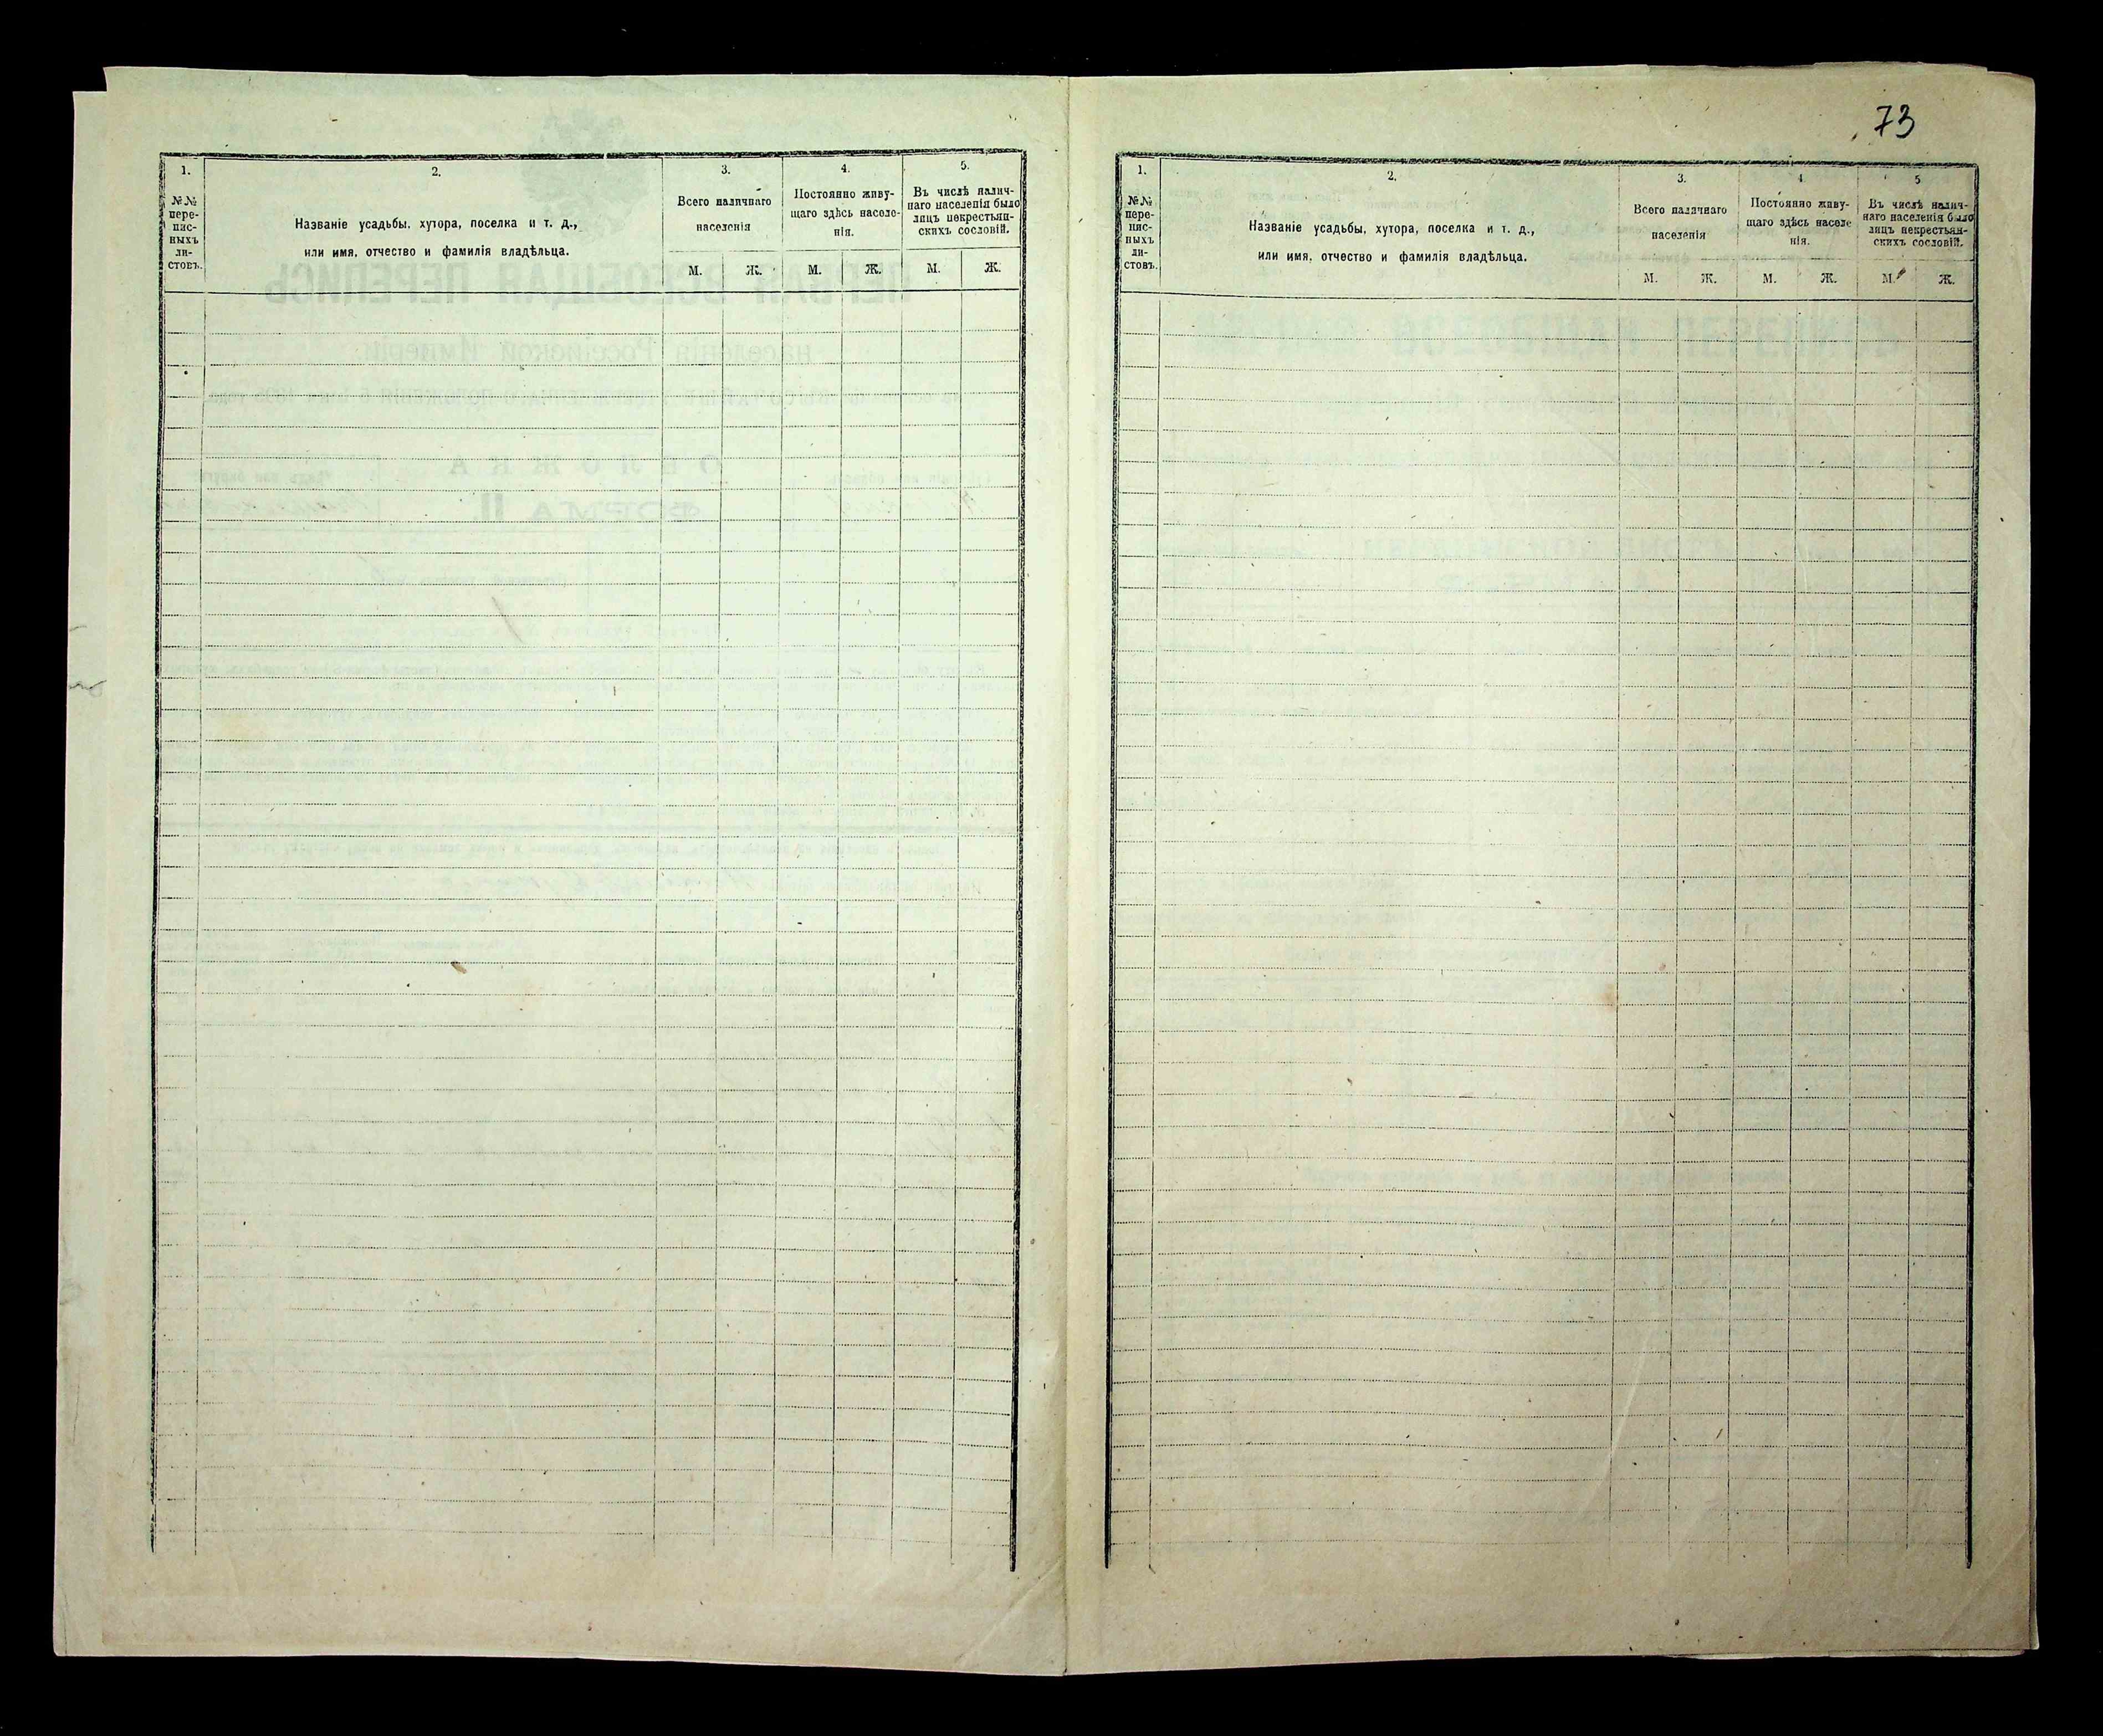 73
1.
№№
пере-
пис-
ныхъ
ли-
стовъ.
2.
Названіе усадьбы, хутора, поселка и т. д.,
или имя, отчество и фамилія владѣльца.
3.
Всего наличнаго
населенія
М. Ж.
4.
Постоянно живу-
щаго здѣсь населе-
нія.
М. Ж.
5.
Въ числѣ налич-
наго населенія было
лицъ некрестьян-
скихъ сословій.
М. Ж.
1.
№№
пере-
пис-
ныхъ
ли-
стовъ.
2.
Названіе усадьбы, хутора, поселка и т. д.,
или имя, отчество и фамилія владѣльца.
3.
Всего наличнаго
населенія
М. Ж.
4
Постоянно живу-
щаго здѣсь населе
нія.
М. Ж.
5
Въ числѣ налич-
наго населенія было
лицъ некрестьян-
скихъ сословій.
М. Ж.
ПЕРВАЯ ВСЕОБЩАЯ ПЕРЕПИСЬ
населенія Россійской Имперіи
ОБЛОЖКА
ФОРМА II.